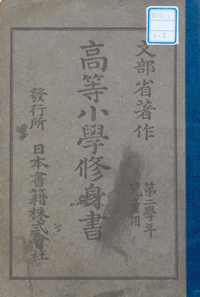 文部省著作
高等小學修身書
第二學年
兒童用
發行所 日本書籍株式會社